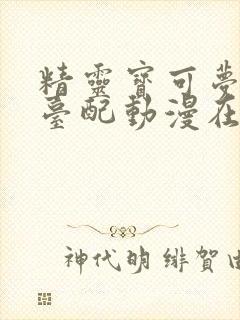 精靈寶可夢
臺配動漫在
神代明 緋賀由